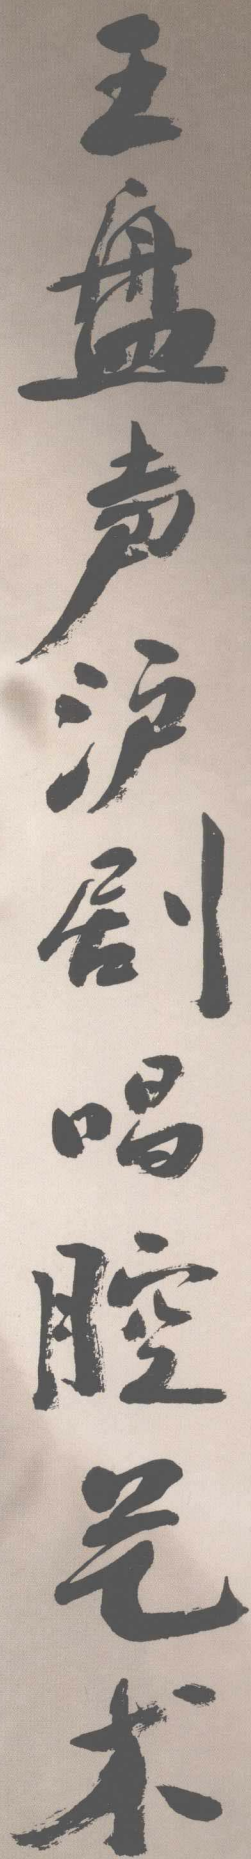 王盘声沪剧唱腔艺术